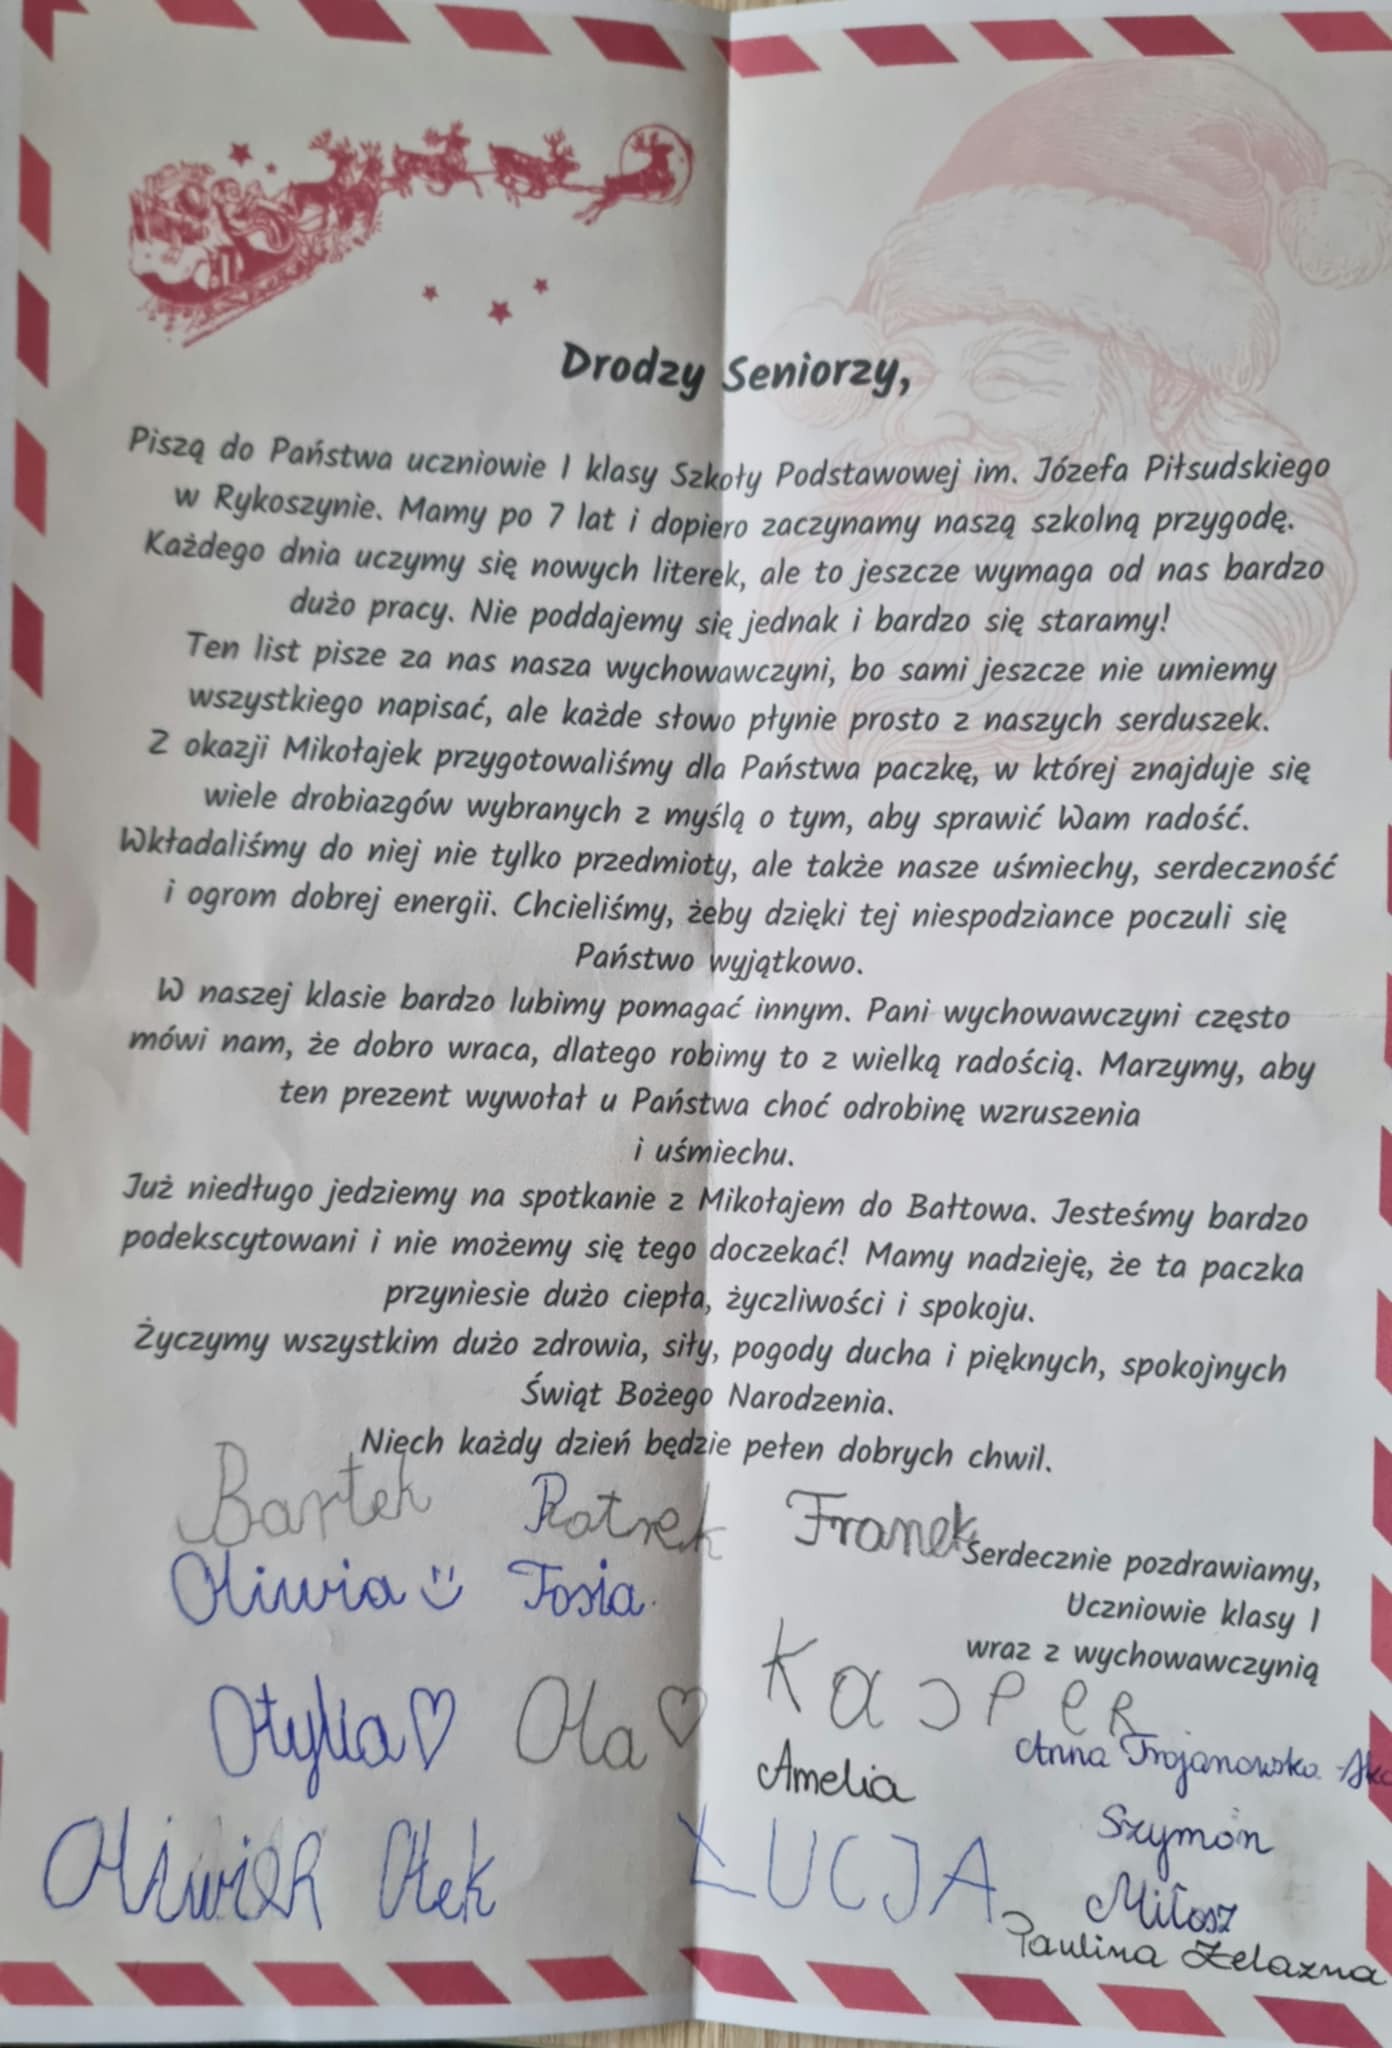 Drodzy Seniorzy,
Piszą do Państwa uczniowie I klasy Szkoły Podstawowej im. Józefa Piłsudskiego
w Rykoszynie. Mamy po 7 lat i dopiero zaczynamy naszą szkolną przygodę.
Każdego dnia uczymy się nowych literek, ale to jeszcze wymaga od nas bardzo
dużo pracy. Nie poddajemy się jednak i bardzo się staramy!
Ten list pisze za nas nasza wychowawczyni, bo sami jeszcze nie umiemy
wszystkiego napisać, ale każde słowo płynie prosto z naszych serduszek.
Z okazji Mikołajek przygotowaliśmy dla Państwa paczkę, w której znajduje się
wiele drobiazgów wybranych z myślą o tym, aby sprawić Wam radość.
Wkładaliśmy do niej nie tylko przedmioty, ale także nasze uśmiechy, serdeczność
i ogrom dobrej energii. Chcieliśmy, żeby dzięki tej niespodziance poczuli się
Państwo wyjątkowo.
W naszej klasie bardzo lubimy pomagać innym. Pani wychowawczyni często
mówi nam, że dobro wraca, dlatego robimy to z wielką radością. Marzymy, aby
ten prezent wywołał u Państwa choć odrobinę wzruszenia
i uśmiechu.
Już niedługo jedziemy na spotkanie z Mikołajem do Bałtowa. Jesteśmy bardzo
podekscytowani i nie możemy się tego doczekać! Mamy nadzieję, że ta paczka
przyniesie dużo ciepła, życzliwości i spokoju.
Życzymy wszystkim dużo zdrowia, siły, pogody ducha i pięknych, spokojnych
Świąt Bożego Narodzenia.
Niech każdy dzień będzie pełen dobrych chwil.
Bartek Franek
Serdecznie pozdrawiamy,
Oliwia Tosia
Uczniowie klasy I
wraz z wychowawczynią
Otylia Ola Kasper
Anna Trojanowska
Amelia
Szymon
Oliwier Olek ŁUCJA
Miłosz
Paulina Żelazna